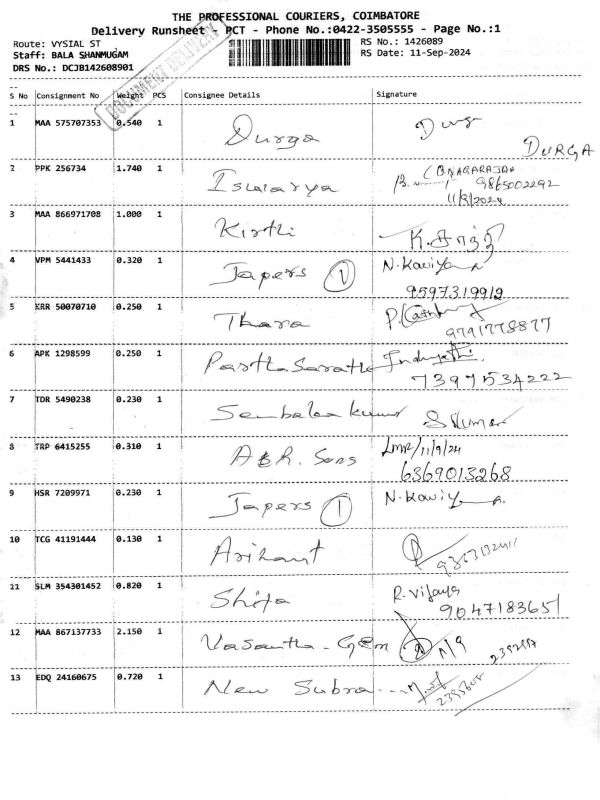 THE PROFESSIONAL COURIERS, COIMBATORE
Delivery Runsheet - PCT - Phone No.:0422-3505555 - Page No.:1
Route: VYSIAL ST
RS No.: 1426089
Staff: BALA SHANMUGAM
RS Date: 11-Sep-2024
DRS No.: DCJB142608901
DOCUMENT DELIVERY
S No Consignment No Weight PCS Consignee Details Signature
1 MAA 575707353 0.540 1 Durga Durga
DURGA
2 PPK 256734 1.740 1 Iswarya (B NAGARAJAN
9865002292
11/9/2024
3 MAA 866971708 1.000 1 Kirthi K.
4 VPM 5441433 0.320 1 Japers 1 N. Kaviya
9597319912
5 KRR 50070710 0.250 1 Thara P.
9791778877
6 APK 1298599 0.250 1 Partha Sarathi
7397534222
7 TDR 5490238 0.230 1 Senbalaa kumar S Kumar
8 TRP 6415255 0.310 1 A&R. Sons 11/9/24
6369013268
9 HSR 7209971 0.230 1 Japers 1 N. Kaviya
10 TCG 41191444 0.130 1 Arihant
11 SLM 354301452 0.820 1 Shifa R. Vijaya
9047183651
12 MAA 867137733 2.150 1 Vasantha - Gem 11/9
13 EDQ 24160675 0.720 1 New Subra